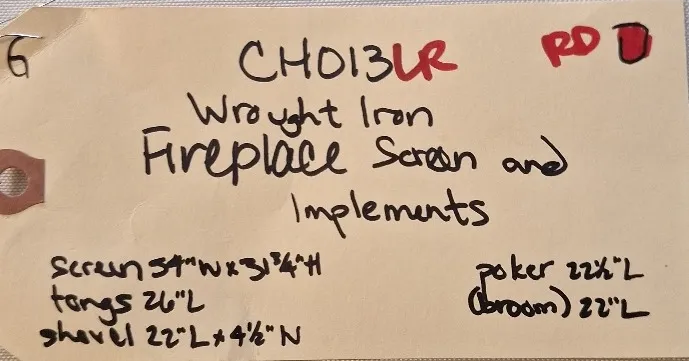 G
CH013LR RD
Wrought Iron
Fireplace Screen and
Implements
screen 54"W x 31 3/4"H
tongs 26"L
shovel 22"L x 4 1/2" N
poker 22 1/2"L
(broom) 22"L